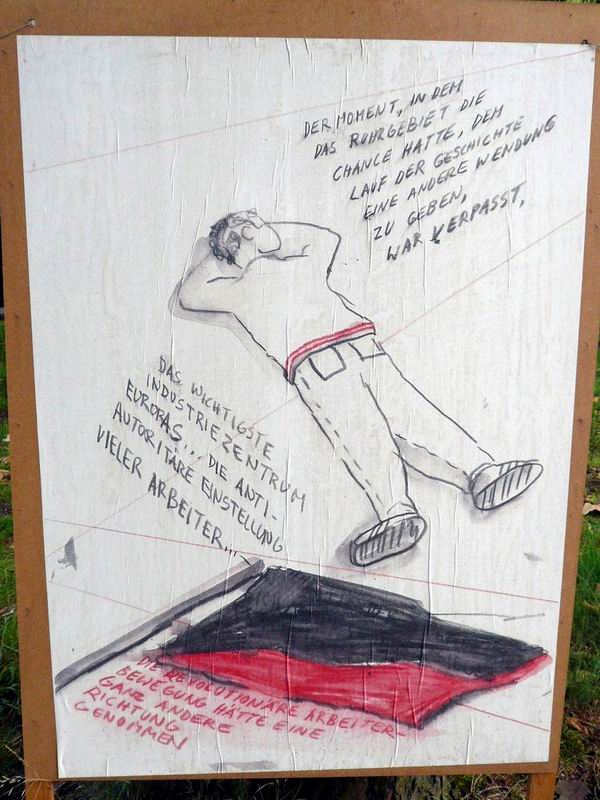 DER MOMENT, IN DEM
DAS RUHRGEBIET DIE
CHANCE HATTE, DEM
LAUF DER GESCHICHTE
EINE ANDERE WENDUNG
ZU GEBEN,
WAR VERPASST,
DAS WICHTIGSTE
INDUSTRIEZENTRUM
EUROPAS... DIE ANTI-
AUTORITÄRE EINSTELLUNG
VIELER ARBEITER...
DIE REVOLUTIONÄRE ARBEITER-
BEWEGUNG HÄTTE EINE
GANZ ANDERE
RICHTUNG
GENOMMEN